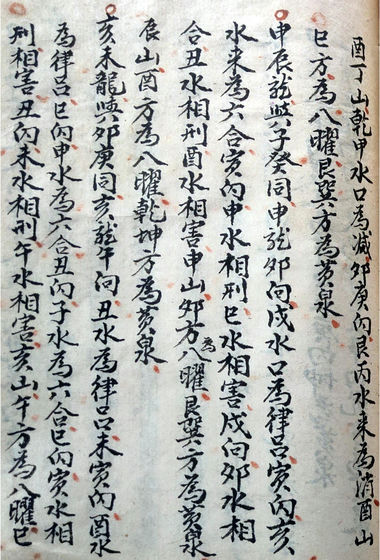 酉丁山乾甲水口為減卯庚向艮丙水来為消酉山
巳方為八曜艮巽方為黃泉
申辰龍與子癸同申龍卯向戌水口為律呂寅向亥
水来為六合寅向申水相刑巳水相害戌向卯水相
合丑水相刑酉水相害申山卯方為八曜艮巽方為黃泉
辰山酉方為八曜乾坤方為黃泉
亥未龍與卯庚同亥龍午向丑水為律呂未寅向酉水
為律呂巳向申水為六合丑向子水為六合巳向寅水相
刑相害丑向未水相刑午水相害亥山午方為八曜巳